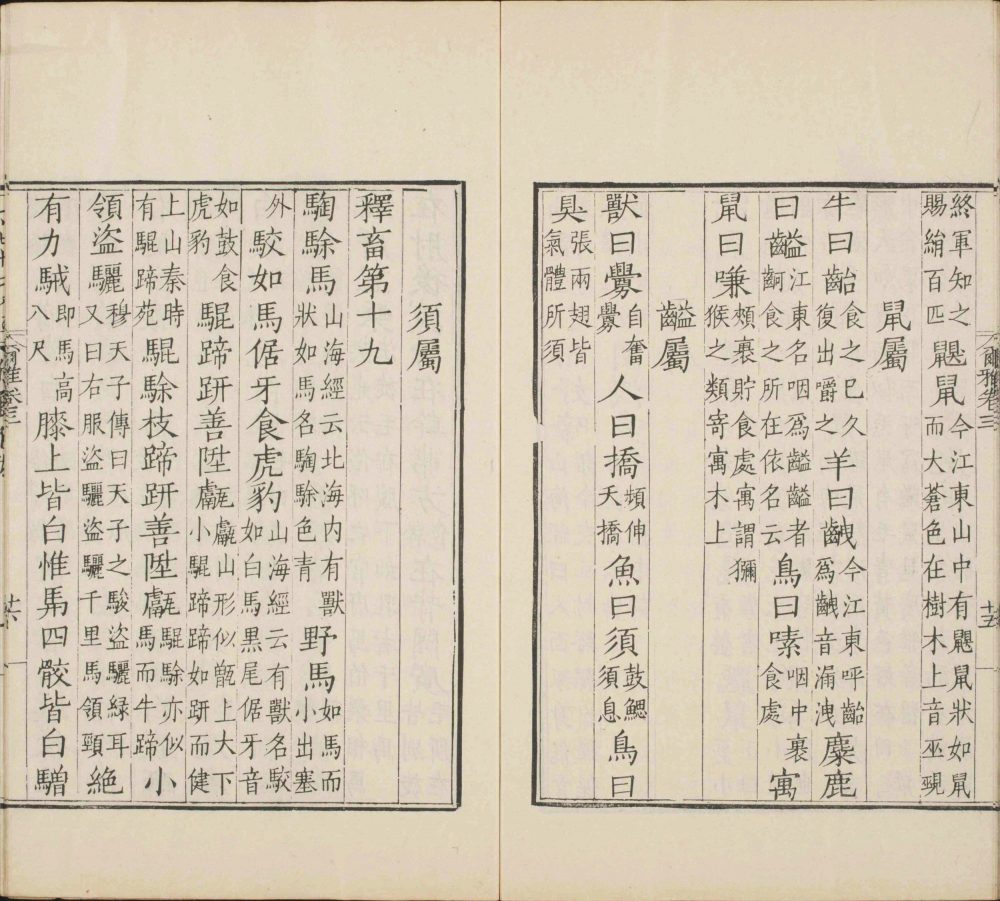 終軍知之賜絹百匹鼳鼠今江東山中有鼳鼠狀如鼠而大蒼色在樹木上音巫覡
鼠屬
牛曰齝食之已久復出嚼之羊曰齥今江東呼齝爲齥音漏洩麋鹿
曰齸江東名咽爲齸齸者齝食之所在依名云鳥曰嗉咽中裹食處寓
鼠曰嗛頰裹貯食處寓謂獼猴之類寄寓木上
齸屬
獸曰釁自奮釁人曰撟頻伸夭撟魚曰須鼓鰓須息鳥曰
狊張兩翅皆氣體所須
爾雅卷三
十五
須屬
釋畜第十九
騊駼馬山海經云北海内有獸狀如馬名騊駼色青野馬如馬而小出塞
外駮如馬倨牙食虎豹山海經云有獸名駮如白馬黑尾倨牙音
如鼓食虎豹騉蹄趼善陞甗甗山形似甑上大下小騉蹄如趼而健
上山秦時有騉蹄苑騉駼枝蹄趼善陞甗騉駼亦似馬而牛蹄小
領盜驪穆天子傳曰天子之駿盜驪緑耳又曰右服盜驪盜驪千里馬領頸絶
有力駥即馬高八尺膝上皆白惟馵四骹皆白驓
爾雅卷三
十六